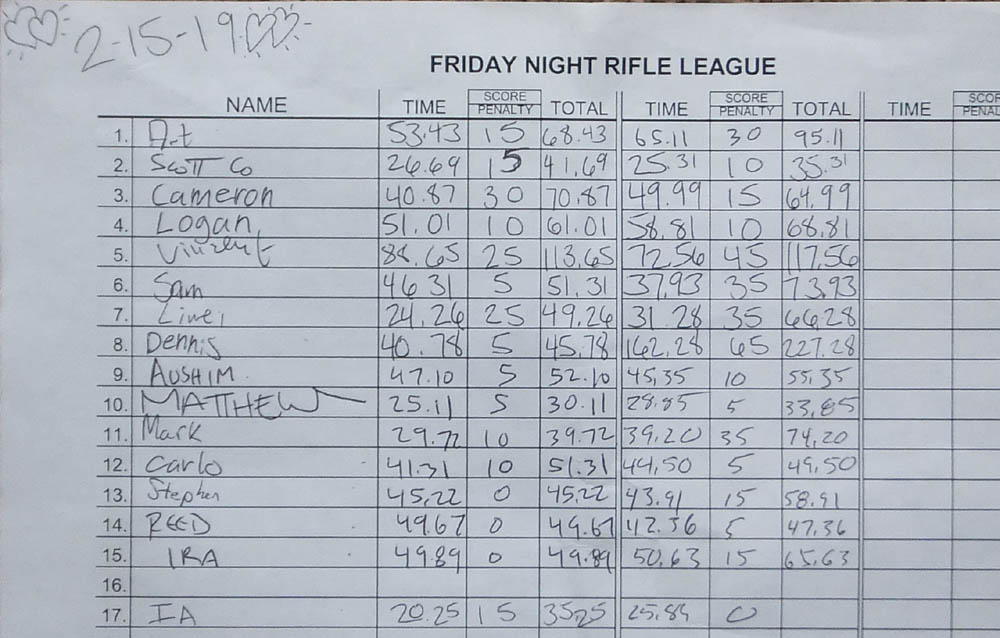 2-15-19
FRIDAY NIGHT RIFLE LEAGUE
NAME TIME SCORE PENALTY TOTAL TIME SCORE PENALTY TOTAL TIME SCOR PENAL
1. Art 53.43 15 68.43 65.11 30 95.11
2. SCOTT Co 26.69 15 41.69 25.31 10 35.31
3. Cameron 40.87 30 70.87 49.99 15 64.99
4. Logan 51.01 10 61.01 58.81 10 68.81
5. Vincent 88.65 25 113.65 72.56 45 117.56
6. Sam 46.31 5 51.31 37.93 35 73.93
7. 24.26 25 49.26 31.28 35 66.28
8. Dennis 40.78 5 45.78 162.28 65 227.28
9. AUSHIM 47.10 5 52.10 45.35 10 55.35
10. MATTHEW 25.11 5 30.11 28.85 5 33.85
11. Mark 29.72 10 39.72 39.20 35 74.20
12. Carlo 41.31 10 51.31 44.50 5 49.50
13. Stephen 45.22 0 45.22 43.91 15 58.91
14. REED 49.67 0 49.67 42.36 5 47.36
15. IRA 49.89 0 49.89 50.63 15 65.63
16.
17. IA 20.25 15 35.25 25.84 0